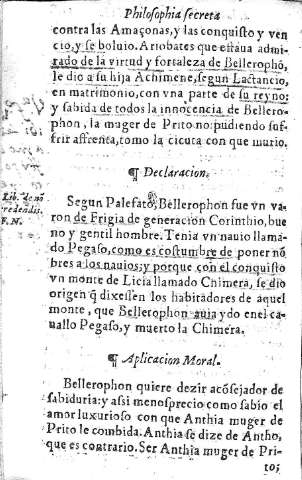 Philosophia secreta
contra las Amaçonas, y las conquisto y ven
cio, y se boluio. Ariobates que estaua admi-
rado de la virtud y fortaleza de Bellerophõ,
le dio a su hija Achimene, segun Lactancio,
en matrimonio, con vna parte de su reyno:
y sabida de todos la innocencia de Bellero-
phon, la muger de Prito no pudiendo suf-
frir affrenta, tomo la cicuta con que murio.
¶ Declaracion.
Lib. de nõ
credendis.
F. N.
Segun Palefato, Bellerophon fue vn va-
ron de Frigia de generacion Corinthio, bue
no y gentil hombre. Tenia vn nauio llama-
do Pegaso, como es costumbre de poner nõ
bres a los nauios: y porque con el conquisto
vn monte de Licia llamado Chimera, se dio
origen q̃ dixessen los habitadores de aquel
monte, que Bellerophon auia ydo en el ca-
uallo Pegaso, y muerto la Chimera.
¶ Aplicacion Moral.
Bellerophon quiere dezir acõsejador de
sabiduria: y assi menosprecio como sabio el
amor luxurioso con que Anthia muger de
Prito le combida. Anthia se dize de Antho,
que es contrario. Ser Anthia muger de Pri-
tos